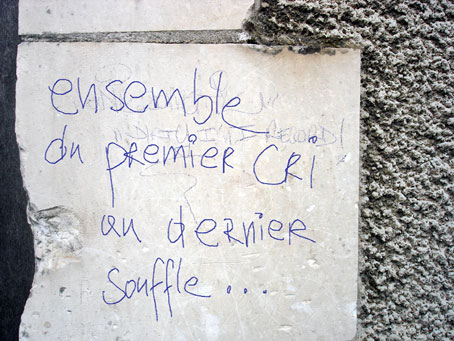 ensemble
du premier CRi
au dernier
souffle...